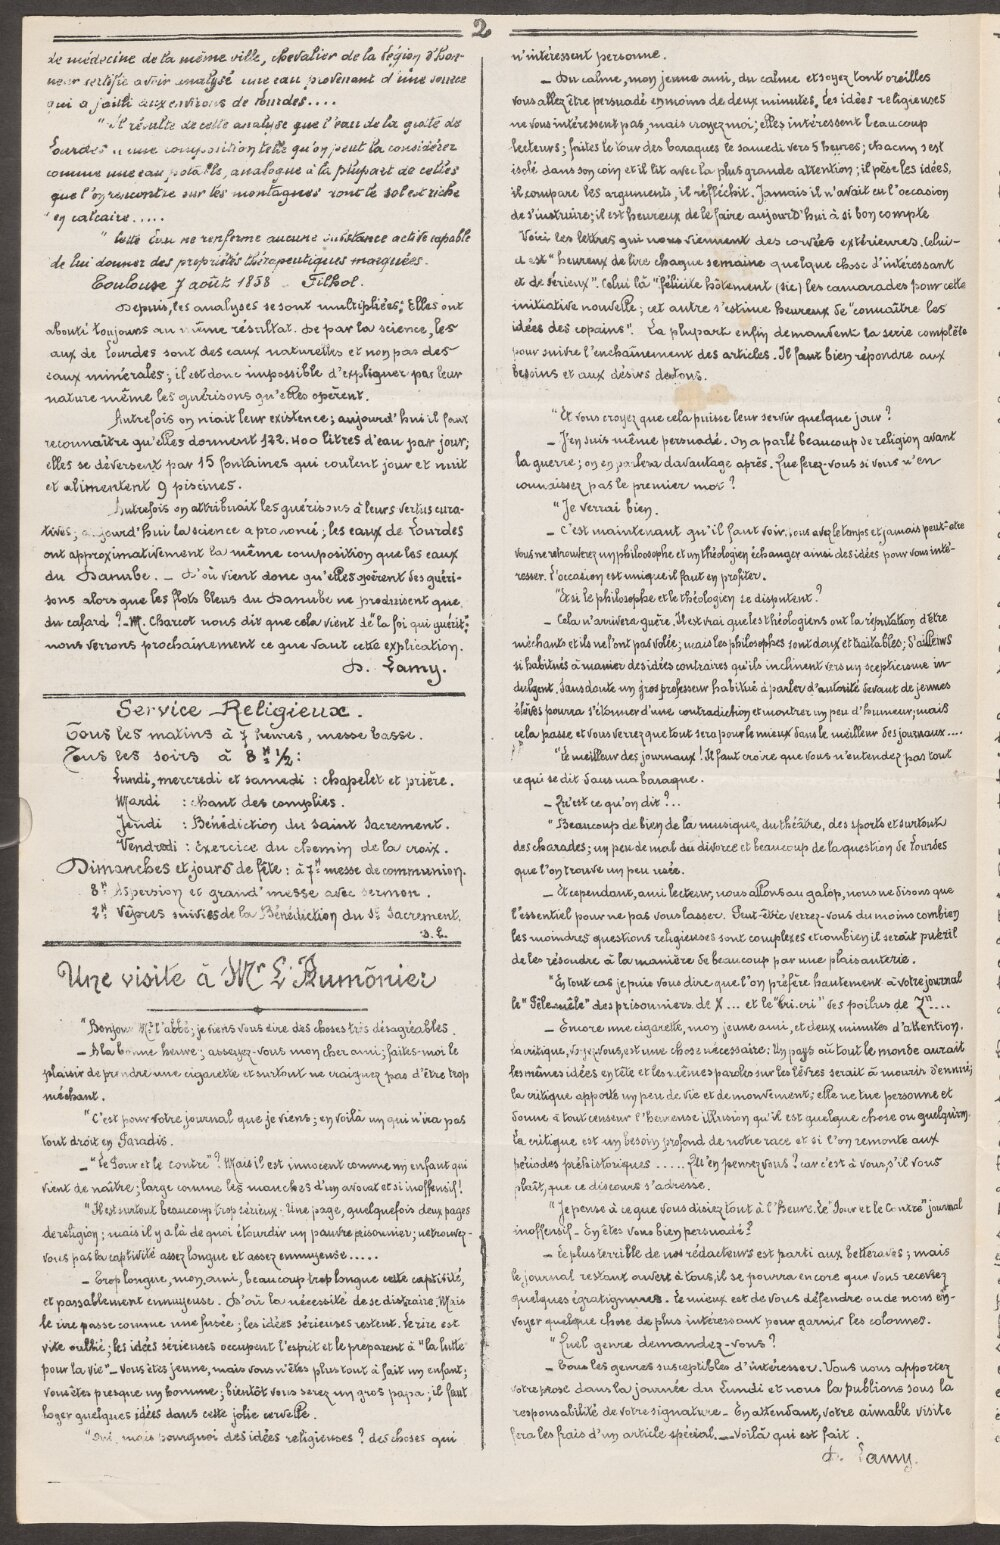 2
de médecine de la même ville, chevalier de la légion d'Hon-
neur certifie avoir analysé une eau provenant d'une source
qui a jailli aux environs de Lourdes....
"Il résulte de cette analyse que l'eau de la grotte de
Lourdes a une composition telle qu'on peut la considérer
comme une eau potable, analogue à la plupart de celles
que l'on rencontre sur les montagnes dont le sol est riche
"en calcaire.....
"Cette Eau ne renferme aucune substance active capable
de lui donner des propriétés thérapeutiques marquées.
Toulouse 7 août 1858 _ Filhol.
Depuis, les analyses se sont multipliées; Elles ont
abouti toujours au même résultat. De par la science, les
aux de Lourdes sont des eaux naturelles et non pas des
eaux minérales; il est donc impossible d'expliquer par leur
nature même les guérisons qu'elles opèrent.
Autrefois on niait leur existence; aujourd'hui il faut
reconnaître qu'elles donnent 122.400 litres d'eau par jour;
elles se déversent par 15 fontaines qui coulent jour et nuit
et alimentent 9 piscines.
Autrefois on attribuait les guérisons à leurs vertus cura-
tives; aujourd'hui la science a prononcé; les eaux de Lourdes
ont approximativement la même composition que les eaux
du Danube. _ D'où vient donc qu'elles opèrent des guéri-
sons alors que les flots bleus du Danube ne produisent que
du cafard? _ M. Charcot nous dit que cela vient de "la foi qui guérit";
nous verrons prochainement ce que vaut cette explication.
D. Lamy.
Service Religieux.
Tous les matins à 7 heures, messe basse.
Tous les soirs à 8H 1/2:
Lundi, mercredi et samedi: chapelet et prière.
Mardi : chant des complies.
Jeudi : Bénédiction du Saint Sacrement.
Vendredi: Exercice du chemin de la croix.
Dimanches et jours de fête: à 7H messe de communion.
8H Aspersion et grand'messe avec sermon.
2H Vêpres suivies de la Bénédiction du St Sacrement.
D. L.
Une visite à Mr L'Aumônier
"Bonjour Mr l'abbé; je viens vous dire des choses très désagréables.
_ A la bonne heure; asseyez-vous mon cher ami; faites-moi le
plaisir de prendre une cigarette et surtout ne craignez pas d'être trop
méchant.
"C'est pour votre journal que je viens; en voilà un qui n'ira pas
tout droit en Paradis.
_ "Le Pour et le contre"? Mais il est innocent comme un enfant qui
vient de naître; large comme les manches d'un avocat et si inoffensif!
"Il est surtout beaucoup trop sérieux. Une page, quelquefois deux pages
de religion; mais il y a là de quoi étourdir un pauvre prisonnier; ne trouvez-
vous pas la captivité assez longue et assez ennuyeuse.....
_ Trop longue, mon ami, beaucoup trop longue cette captivité,
et passablement ennuyeuse. D'où la nécessité de se distraire. Mais
le rire passe comme une fusée; les idées sérieuses restent. Le rire est
vite oublié; les idées sérieuses occupent l'esprit et le préparent à "la lutte
pour la vie" _ Vous êtes jeune, mais vous n'êtes plus tout à fait un enfant;
vous êtes presque un homme; bientôt vous serez un gros papa; il faut
loger quelques idées dans cette jolie cervelle.
"Oui, mais pourquoi des idées religieuses? des choses qui
n'intéressent personne.
_ Du calme, mon jeune ami, du calme et soyez tout oreilles
vous allez être persuadé en moins de deux minutes. Les idées religieuses
ne vous intéressent pas, mais croyez moi; elles intéressent beaucoup
lecteurs; faites le tour des baraques le samedi vers 5 heures; chacun s'est
isolé dans son coin et il lit avec la plus grande attention; il pèse les idées,
il compare les arguments, il réfléchit. Jamais il n'avait eu l'occasion
de s'instruire; il est heureux de le faire aujourd'hui à si bon compte
Voici les lettres qui nous viennent des corvées extérieures. Celui-
ci est "heureux de lire chaque semaine quelque chose d'intéressant
et de sérieux". Celui là "félicite hôtement (sic) les camarades pour cette
initiative nouvelle; cet autre s'estime heureux de "connaître les
idées des copains". La plupart enfin demandent la serie complète
pour suivre l'enchaînement des articles. Il faut bien répondre aux
besoins et aux désirs de tous.
"Et vous croyez que cela puisse leur servir quelque jour?
_ J'en suis même persuadé. On a parlé beaucoup de religion avant
la guerre; on en parlera davantage après. Que ferez-vous si vous n'en
connaissez pas le premier mot?
"Je verrai bien.
_ C'est maintenant qu'il faut voir. Vous avez le temps et jamais peut-être
vous ne retrouverez un philosophe et un théologien échanger ainsi des idées pour vous inté-
resser. L'occasion est unique il faut en profiter.
"Et si le philosophe et le théologien se disputent?
_ Cela n'arrivera guère. Il est vrai que les théologiens ont la réputation d'être
méchants et ils ne l'ont pas volée; mais les philosophes sont doux et traitables; d'ailleurs
si habitués à manier des idées contraires qu'ils inclinent vers un scepticisme in-
dulgent. Sans doute un gros professeur habitué à parler d'autorité devant de jeunes
élèves pourra s'étonner d'une contradiction et montrer un peu d'humeur; mais
cela passe et vous verrez que tout sera pour le mieux dans le meilleur des journaux....
"Le meilleur des journaux! Il faut croire que vous n'entendez pas tout
ce qui se dit dans ma baraque.
_ Qu'est ce qu'on dit?..
"Beaucoup de bien de la musique, du théâtre, des sports et surtout
des charades; un peu de mal du divorce et beaucoup de la question de Lourdes
que l'on trouve un peu usée.
_ Et cependant, ami lecteur, nous allons au galop, nous ne disons que
l'essentiel pour ne pas vous lasser. Peut-être verrez-vous du moins combien
les moindres questions religieuses sont complexes et combien il serait puéril
de les résoudre à la manière de beaucoup par une plaisanterie.
"En tout cas je puis vous dire que l'on préfère hautement à votre journal
le "Pêle-mêle" des prisonniers de X... et le "Cri-cri" des poilus de Zn....
_ Encore une cigarette, mon jeune ami, et deux minutes d'attention.
La critique, voyez-vous, est une chose nécessaire. Un pays où tout le monde aurait
les mêmes idées en tête et les mêmes paroles sur les lèvres serait à mourir d'ennui;
la critique apporte un peu de vie et de mouvement; elle ne tue personne et
donne à tout censeur l'heureuse illusion qu'il est quelque chose ou quelqu'un.
La critique est un besoin profond de notre race et si l'on remonte aux
périodes préhistoriques ..... Qu'en pensez vous? car c'est à vous, s'il vous
plaît, que ce discours s'adresse.
"Je pense à ce que vous disiez tout à l'heure. Le "Pour et le Contre" journal
inoffensif _ En êtes vous bien persuadé?
_ Le plus terrible de nos rédacteurs est parti aux betteraves; mais
le journal restant ouvert à tous, il se pourra encore que vous receviez
quelques égratignures. Le mieux est de vous défendre ou de nous en-
voyer quelque chose de plus intéressant pour garnir les colonnes.
"Quel genre demandez-vous?
_ Tous les genres susceptibles d'intéresser. Vous nous apportez
votre prose dans la journée du Lundi et nous la publions sous la
responsabilité de votre signature _ En attendant, votre aimable visite
fera les frais d'un article spécial. _ Voilà qui est fait.
D. Lamy.